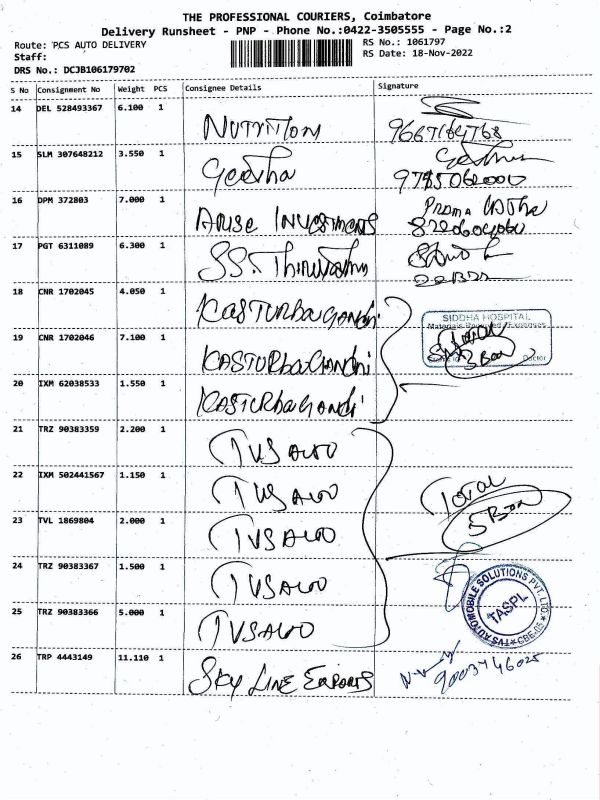 THE PROFESSIONAL COURIERS, Coimbatore
Delivery Runsheet - PNP - Phone No.:0422-3505555 - Page No.:2
Route: PCS AUTO DELIVERY RS No.: 1061797
Staff: RS Date: 18-Nov-2022
DRS No.: DCJB106179702
S No Consignment No Weight PCS Consignee Details Signature
14 DEL 528493367 6.100 1 NUTRITION
15 SLM 307648212 3.550 1 Geetha
16 DPM 372803 7.000 1 ARISE INVESTMENTS
17 PGT 6311089 6.300 1 SS.
18 CNR 1702045 4.050 1 KASTURbaGANdhi
19 CNR 1702046 7.100 1 KASTURbaGANdhi
20 IXM 62038533 1.550 1 KASTURbaGANdhi
SIDDHA HOSPITAL
Materials Received / Expenses
Doctor
Total
3 Box
21 TRZ 90383359 2.200 1 TVS AUTO
22 IXM 502441567 1.150 1 TVS AUTO
23 TVL 1869804 2.000 1 TVS AUTO
24 TRZ 90383367 1.500 1 TVS AUTO
25 TRZ 90383366 5.000 1 TVS AUTO
Total
5 Box
TVS AUTOMOBILE SOLUTIONS PVT. LTD.
TASPL
CBE-05
26 TRP 4443149 11.110 1 SKY LINE EXPORTS
9003746025